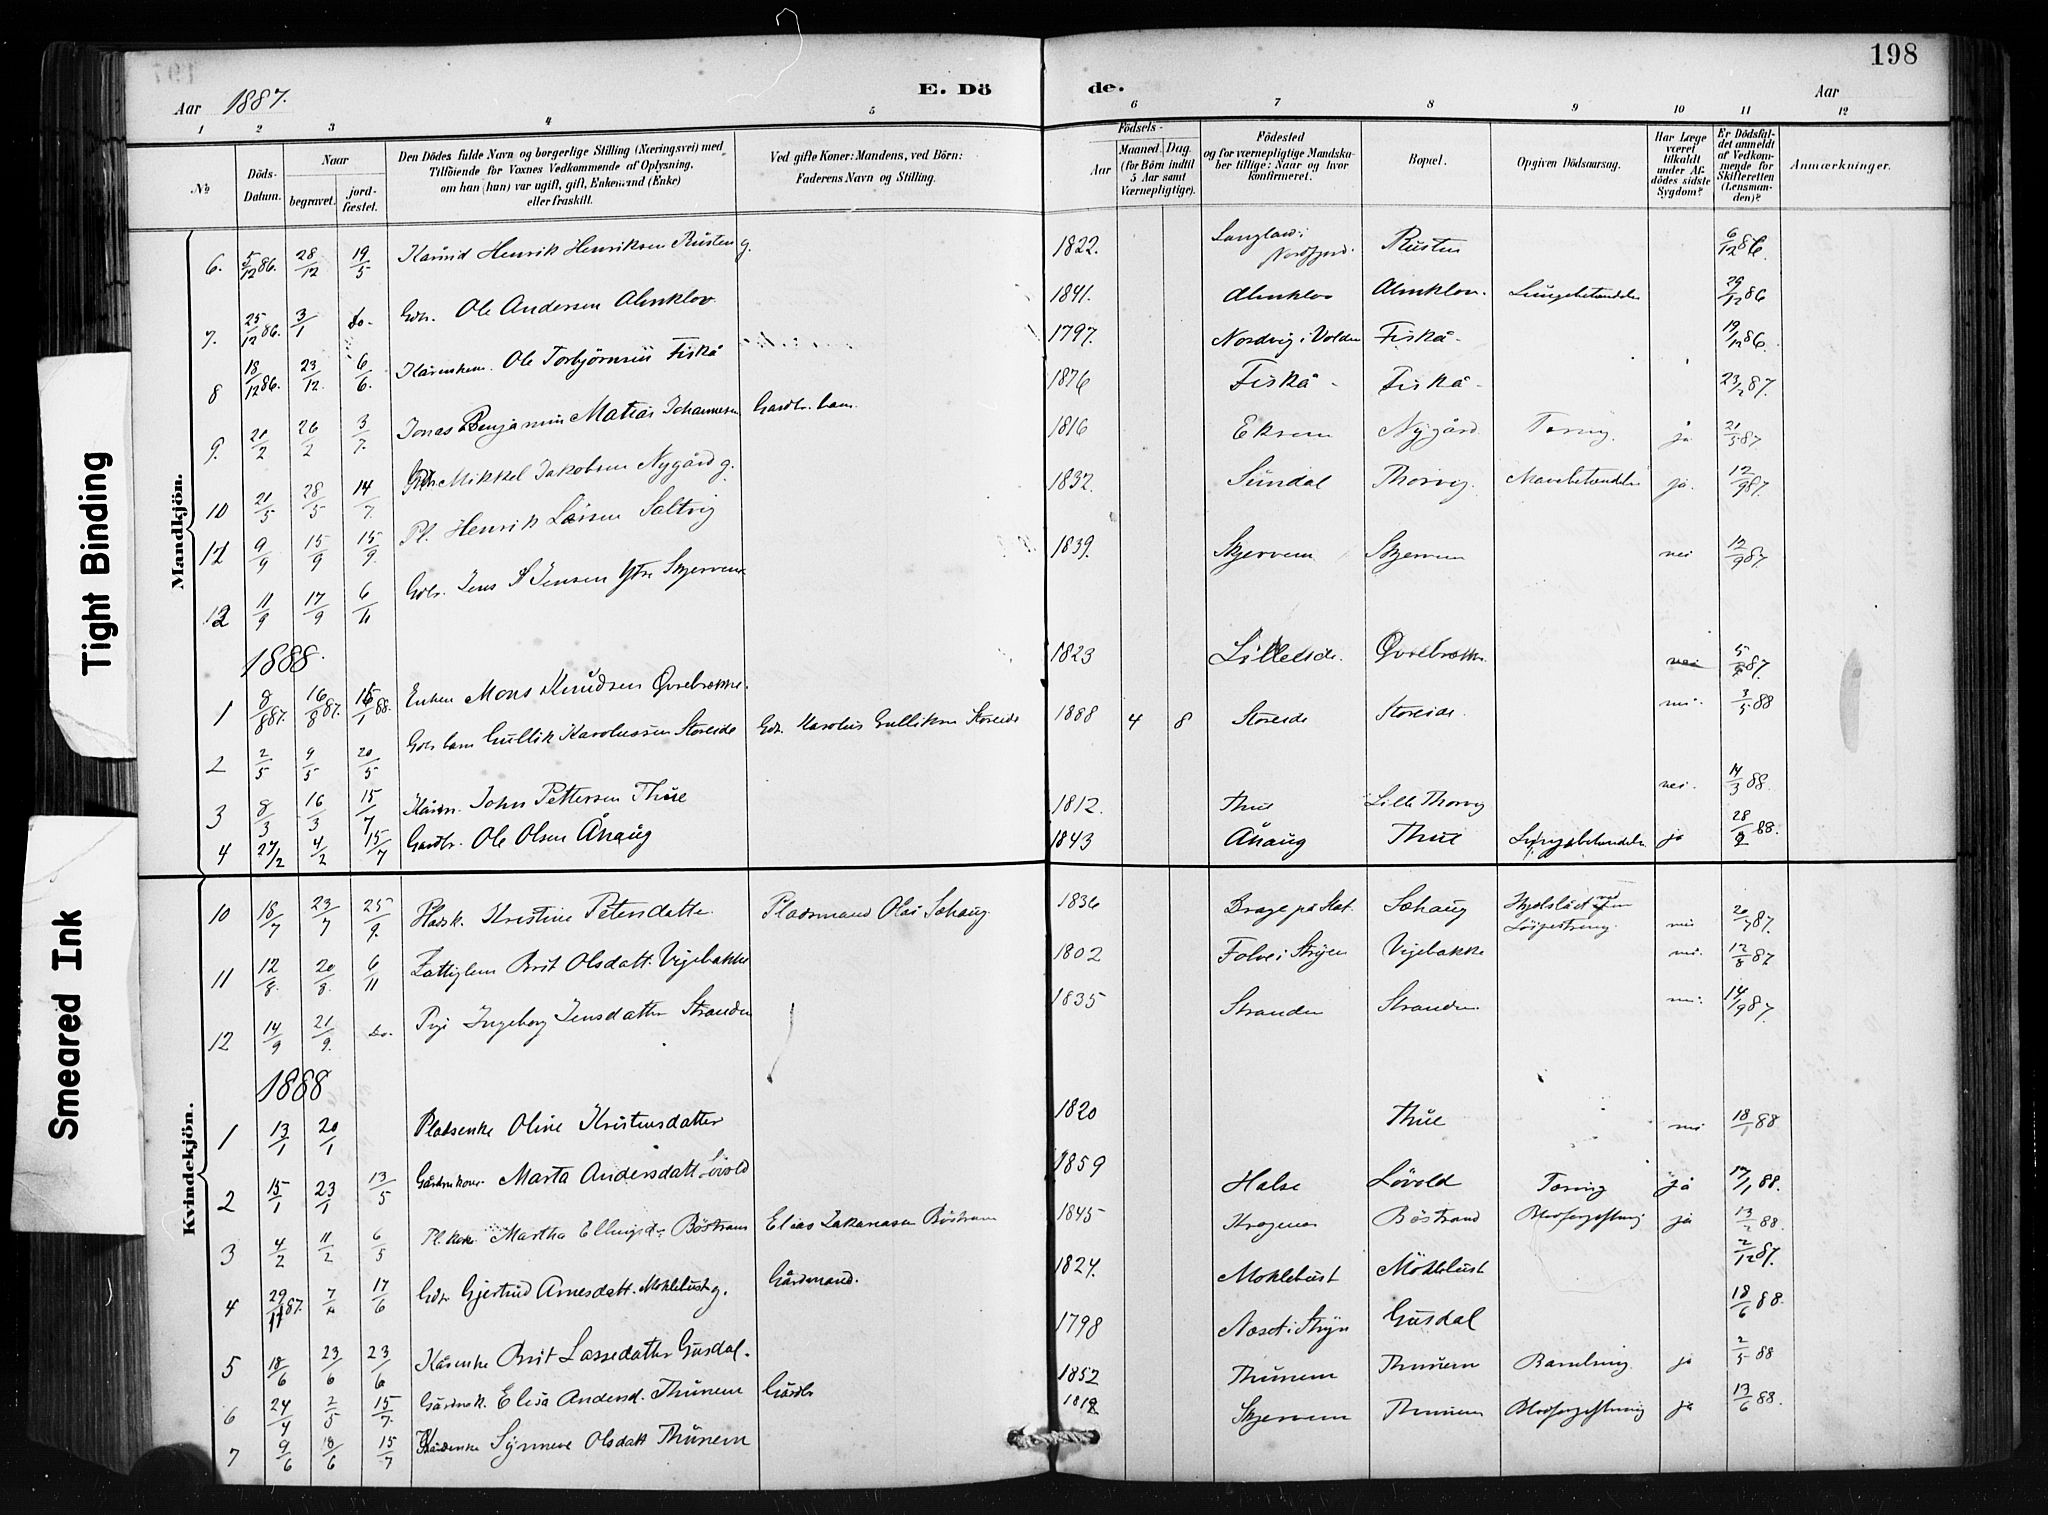 198
Aar 1887.
E. Döde.
Aar
1 2 3 4 5 6 7 8 9 10 11 12
№
Döds-Datum.
Naar
begravet.
jord-fæstet.
Den Dödes fulde Navn og borgerlige Stilling (Næringsvei) med
Tilföiende for Voxnes Vedkommende af Oplysning,
om han (hun) var ugift, gift, Enkemand (Enke)
eller fraskilt.
Ved gifte Koner: Mandens, ved Börn:
Faderens Navn og Stilling.
Födsels-
Aar
Maaned. Dag.
(for Börn indtil
5 Aar samt
Værnepligtige).
Födested
og for værnepligtige Mandska-
ber tillige: Naar og hvor
konfirmeret.
Bopæl.
Opgiven Dödsaarsag.
Har Læge
været
tilkaldt
under Af-
dödes sidste
Sygdom?
Er Dödsfal-
det anmeldt
af Vedkom-
mende for
Skifteretten
(Lensman-
den)?
Anmærkninger.
Mandkjön.
6. 5/12 86. 28/12 19/5 Henrik Henriksen Rusten g. 1822. Nordfjord. Rusten 6/12 86.
7. 25/12 86. 3/1 do. Gdr. Ole Andersen Almklov 1841. Almklov Almklov. Lungebetændelse 29/12 86
8 18/12 86. 23/12. 6/6. Ole Torbjørnsen Fiskå 1797. Nordvig i Volden Fiskå. 19/12 86.
9. 21/2 26/2 3/7. Jonas Benjamin Matias Johannesen Gardbr. barn 1876 Fiskå Fiskå 23/2 87.
10 21/5 28/5 14/7. Gdr. Mikkel Jakobsen Nygård g. 1816 Eksem Nygård Tæring. ja 21/5 87
11 9/9 15/9 15/9. Pl. Henrik Larsen Saltvig 1832. Sundal Thorvig. Mavebetændelse ja. 12/9 87.
12 11/9 17/9 6/11 Gdr. Jens S Jensen Ytre Skjervem 1839. Skjervem Skjervem nei 12/9 87.
1888.
1 8/8 87. 16/8 87. 15/1 88. Enkem Mons Knudsen Øvrebrække. 1823 Lilledsde. Øvrebrække. nei 5/9 87.
2 2/5 9/5 20/5 Gdr barn Gullik Karolussen Storeide Gdr. Karolus Gulliksen Storeide 1888 4 8 Storeide Storeide. nei. 3/5 88
3 8/3 16/3 15/7 John Pettersen Thue 1812. Thue Lille Thorvig nei. 14/3 88.
4 27/2 4/2 15/7 Gardbr. Ole Olsen Åhaug 1843 Åhaug Thue Lungebetændelse ja 28/2 88.
Kvindekjön.
10 18/7 23/7 25/9. Pladsk. Kristine Petersdatter Pladsmand Olai Sæhaug. 1836 Brage på Stat. Sæhaug nei 20/7 87.
11 12/8. 20/8. 6/11 Fattiglem Brit Olsdatt. Vijebakke 1802 Folve i Stryen Vijebakke nei. 12/8 87
12 14/9 21/9. do. Pige Ingeborg Jensdatter Stranden 1835 Stranden Stranden nei. 14/9 87.
1888
1 13/1 20/1 Pladsenke Oline Kristensdatter 1820 Thue nei 18/1 88
2 15/1 23/1 13/5 Gårdmkone Marta Andersdatt. Lövold 1859 Halse Lövold Tæring ja 17/1 88.
3 4/2 11/2 6/5 Pl. kone Martha Ellingsd. Böstrand Elias Zakariasen Böstrand 1845 Böstrand Blodforgiftning ja 13/2 88.
4 29/11 87. 7/12 17/6 Gdr Gjertrud Arnesdatt. Moklebust g. Gårdmand. 1824. Moklebust Möklebust 2/12 87.
5 18/6 23/6 23/6 Kårenke Brit Lassedatter Gusdal. 1798 Næset i Stryn Gusdal 18/6 88.
6 24/4 2/5 15/7. Gårdmk. Elisa Andersd. Thunem Gårdbr 1852 Thunem Thunem Barselseng. ja 2/5 88
7 9/6 18/6 15/7 Kårenke Synneve Olsdatt Thunem 1812 Skjervem Thunem Blodforgiftning ja 13/6 88.
Tight Binding
Smeared Ink